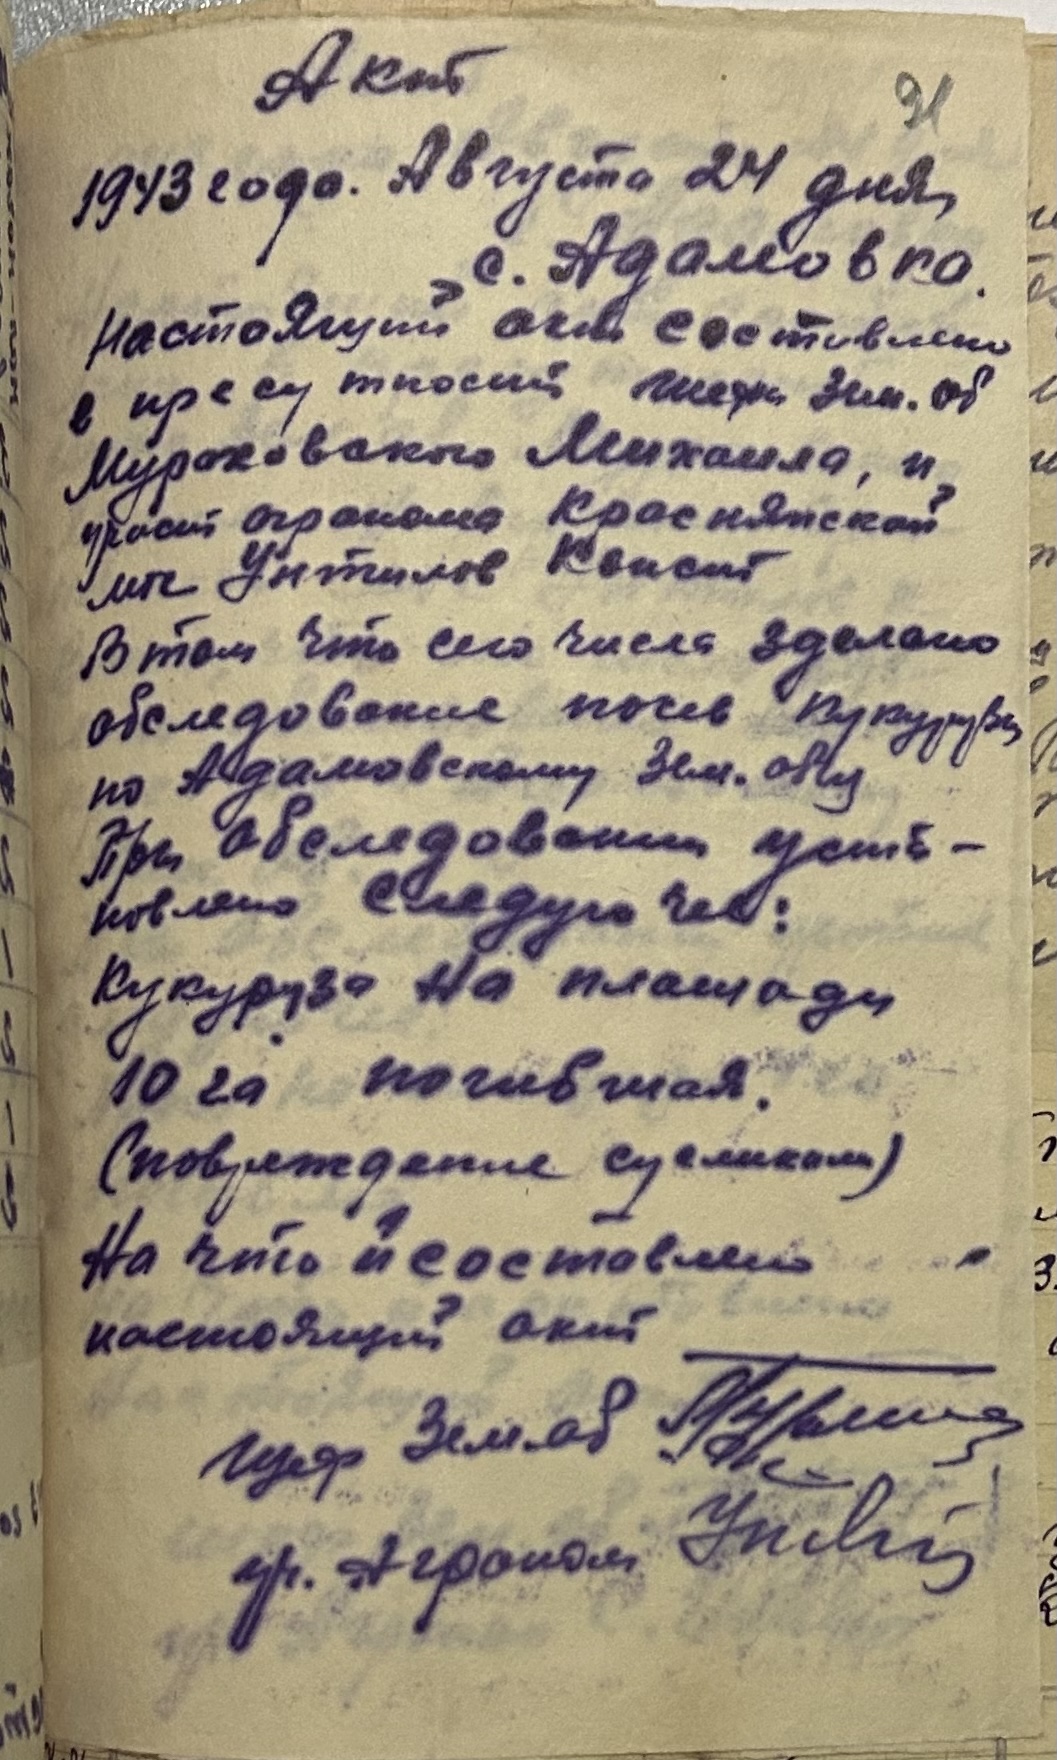 Акт
91
1943 года. Августа 24 дня,
с. Адамовка.
Настоящий акт составлено
в пресутносит шефа Зем. об
Мураховского Михаила, и
участ агранома Краснянской
мтс Унтилов Консит
В том что сего числа зделано
обследование посев кукурузы
по Адамовскому Зем. обу
При обследовании уста-
новлено следующее:
Кукуруза на площади
10 га погибшая.
(повреждение сусликами)
На что и составлено
настоящий акт
шеф Зем.об
уч. Агроном